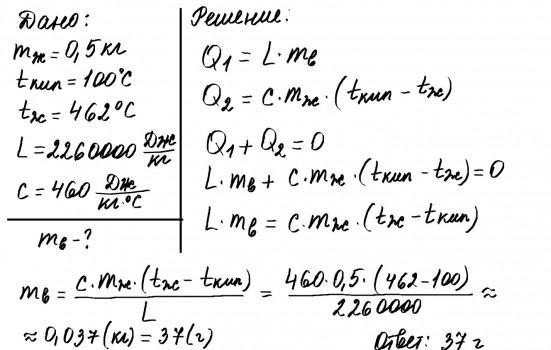 Дано:
mж = 0,5 кг
tкип = 100°C
tж = 462°C
L = 2260000 Дж/кг
C = 460 Дж/кг·°C
mв - ?
Решение:
Q₁ = L·mв
Q₂ = C·mж·(tкип - tж)
Q₁ + Q₂ = 0
L·mв + C·mж·(tкип - tж) = 0
L·mв = C·mж·(tж - tкип)
mв = C·mж·(tж - tкип)/L = 460·0,5·(462-100)/2260000 ≈
≈ 0,037 (кг) = 37 (г)
Ответ: 37 г